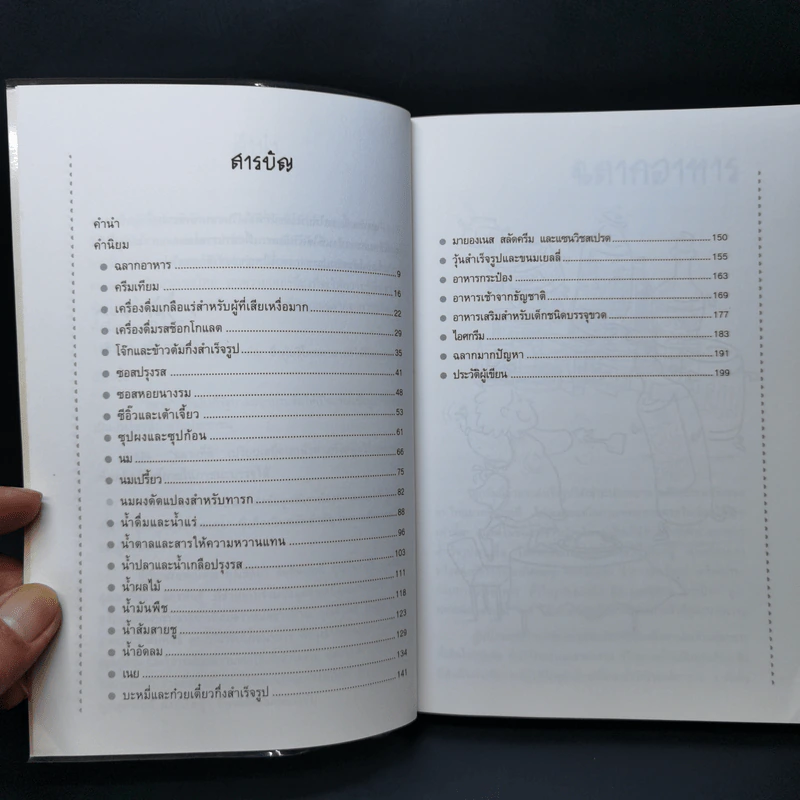 สารบัญ
คำนำ
คำนิยม
ฉลากอาหาร 9
ครีมเทียม 16
เครื่องดื่มเกลือแร่สำหรับผู้ที่เสียเหงื่อมาก 22
เครื่องดื่มรสช็อกโกแลต 29
โจ๊กและข้าวต้มกึ่งสำเร็จรูป 35
ซอสปรุงรส 41
ซอสหอยนางรม 48
ซีอิ๊วและเต้าเจี้ยว 53
ซุปผงและซุปก้อน 61
นม 66
นมเปรี้ยว 75
นมผงดัดแปลงสำหรับทารก 82
น้ำดื่มและน้ำแร่ 88
น้ำตาลและสารให้ความหวานแทน 96
น้ำปลาและน้ำเกลือปรุงรส 103
น้ำผลไม้ 111
น้ำมันพืช 118
น้ำส้มสายชู 123
น้ำอัดลม 129
เนย 134
บะหมี่และก๋วยเตี๋ยวกึ่งสำเร็จรูป 141
มายองเนส สลัดครีม และแซนวิชสเปรด 150
วุ้นสำเร็จรูปและขนมเยลลี่ 155
อาหารกระป๋อง 163
อาหารเช้าจากธัญชาติ 169
อาหารเสริมสำหรับเด็กชนิดบรรจุขวด 177
ไอศกรีม 183
ฉลากมากปัญหา 191
ประวัติผู้เขียน 199